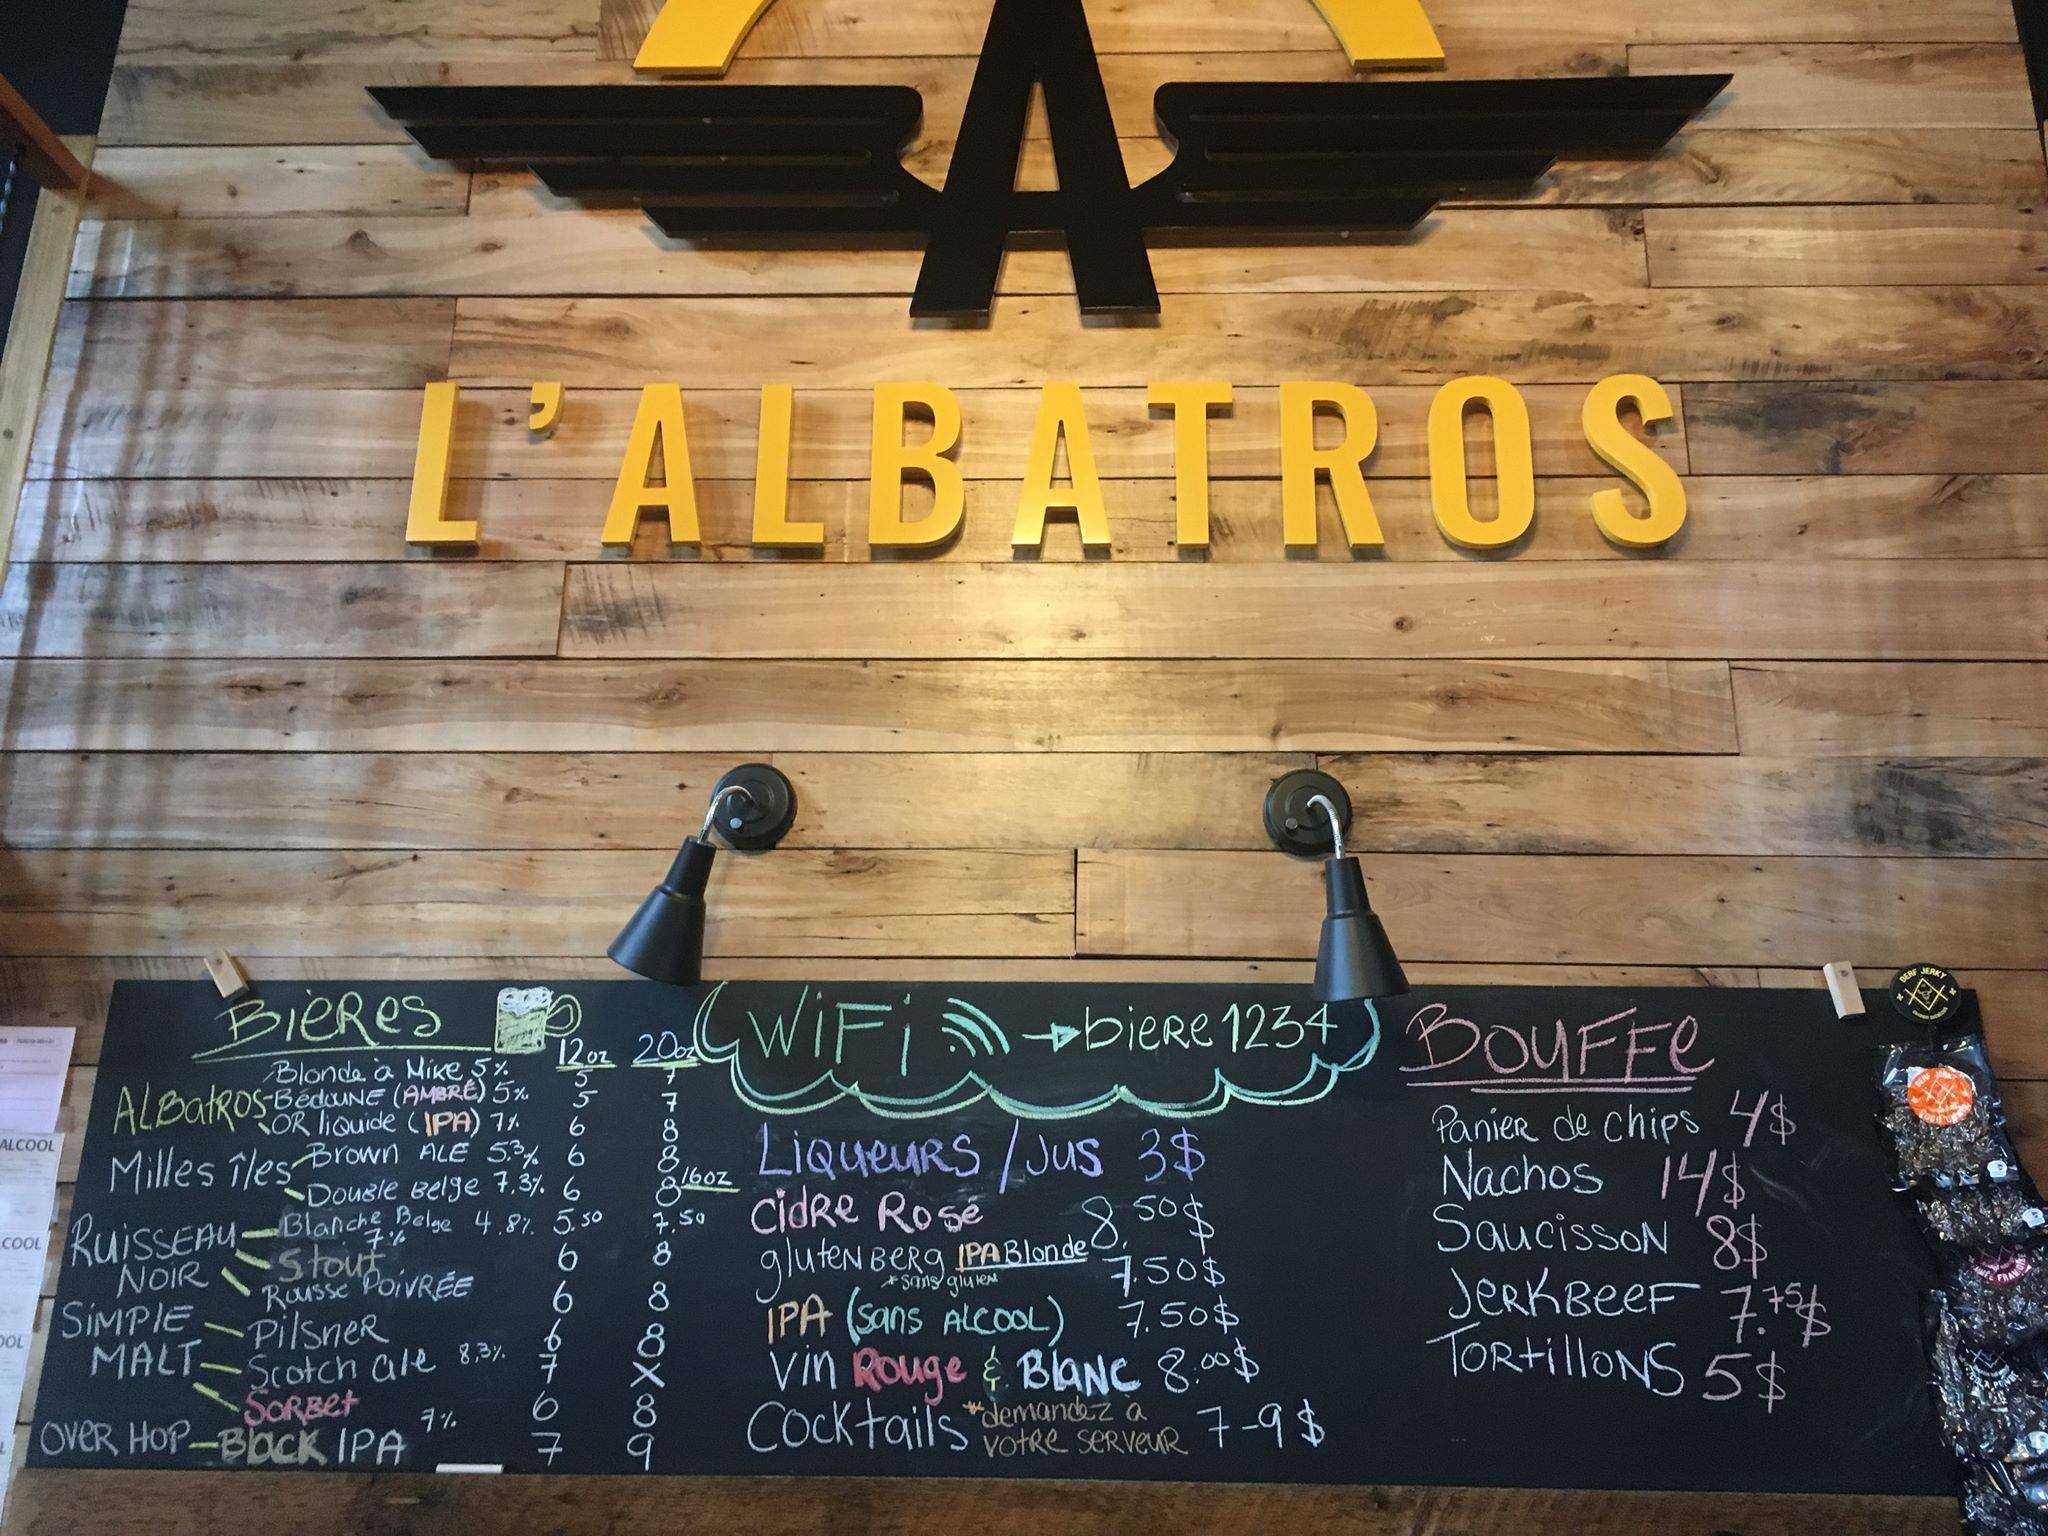 A
L'ALBATROS
BIÈRES
12oz 20oz
ALBatROS
Blonde à Mike 5% 5 7
BÉDOUNE (AMBRÉ) 5% 5 7
OR liquide (IPA) 7% 6 8
Milles îles
BROWN ALE 5.3% 6 8
DOUBLE Belge 7,3% 6 8
16oz
RUISSEAU NOIR
Blanche Belge 4.8% 5.50 7.50
7%
Stout 6 8
Rousse POIVRÉE 6 8
SIMPLE MALT
PilSNER 6 8
Scotch ale 8,3% 7 X
SORBET 6 8
OVER HOP
Black IPA 7% 7 9
WiFi → biere1234
LIQUEURS / JUS 3$
CIDRE ROSÉ 8.50$
glutenberg IPA Blonde 7.50$
*sans gluten
IPA (sans ALCOOL) 7.50$
Vin Rouge & BLANC 8.00$
Cocktails *demandez à votre serveur 7-9$
BOUFFe
Panier de chips 4$
Nachos 14$
Saucisson 8$
JERKBEEF 7.75$
TORtillONS 5$
BERF JERKY
ALCOOL
COOL
OOL